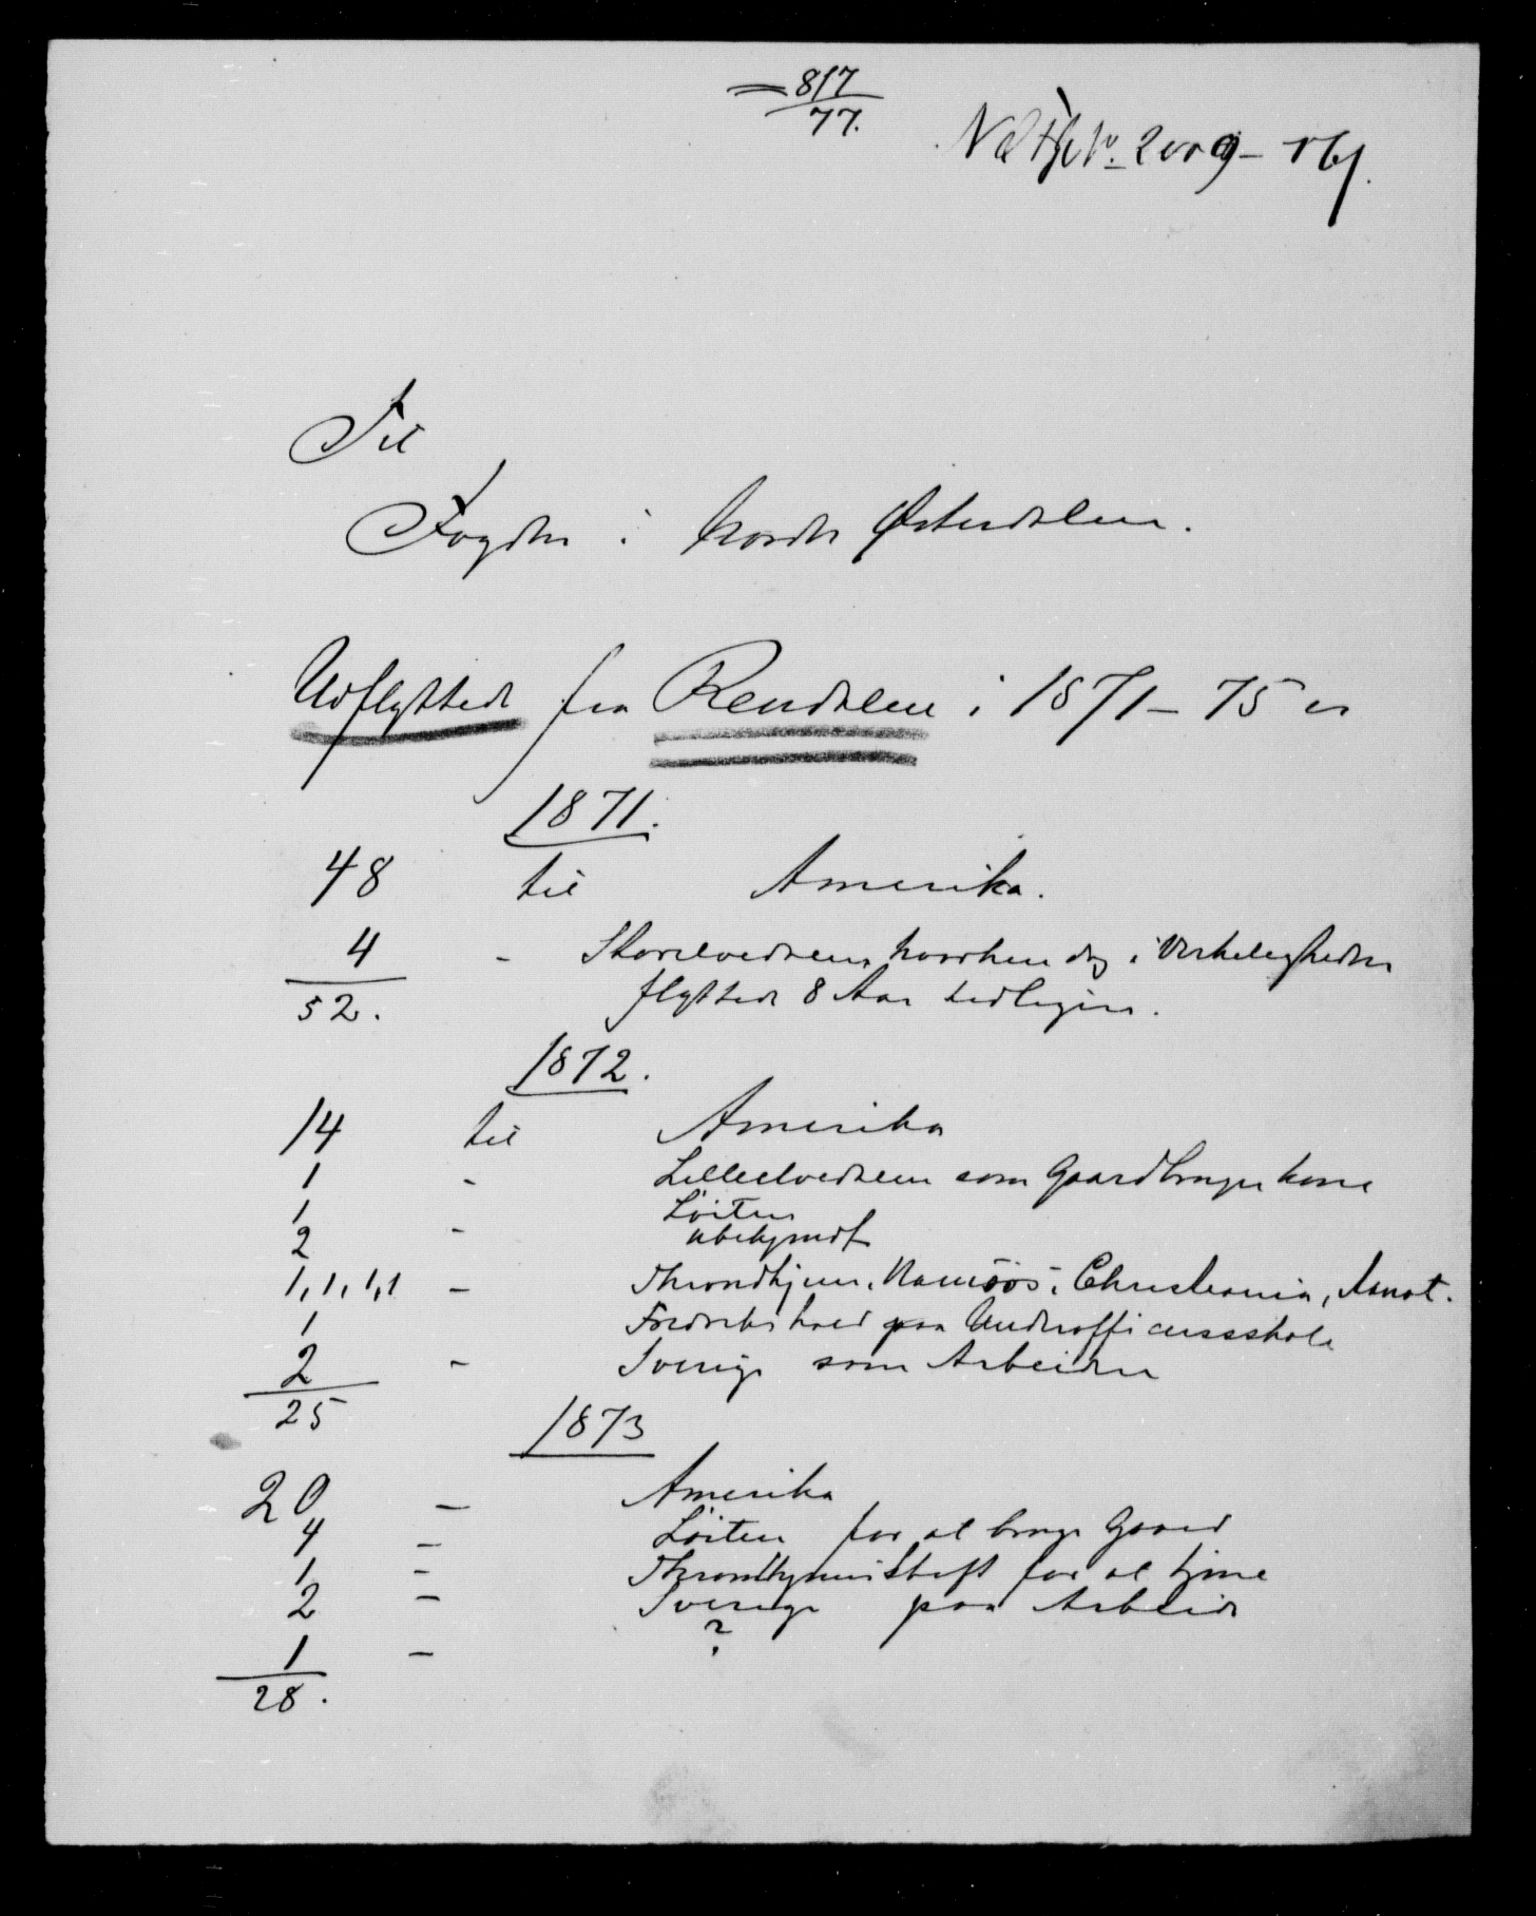 817
77.
Til
Fogden i Nordre Østerdalen.
Udflyttede fra Rendalen i 1871-75 er
1871.
48 til Amerika.
4 - Storelvedalen, hvorhen dog i Virkeligheden
52. flyttede 8 Aar tidligere.
1872.
14 til Amerika
1 - Lilleelvedalen som Gaardbruger kone
1 Löiten
2 - ubekjendt
1, 1, 1, 1 - Throndhjem, Namsös, Christiania, Aamot.
1 Fredrikshald paa Underofficersskole
2 - Sverige som Arbeidere
25
1873
20 - Amerika
4 - Löiten for at bruge Gaard
1 - Throndhjems Stift for at tjene
2 - Sverige paa Arbeide
1 - ?
28.